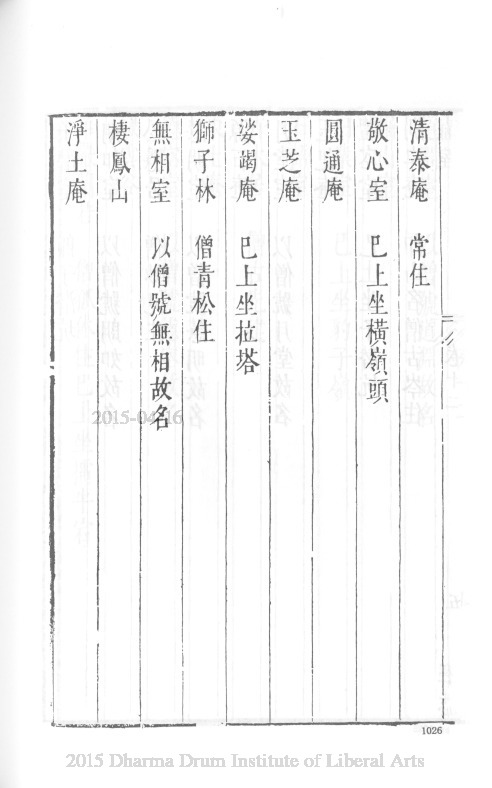 清泰庵　常住
敬心室　巳上坐橫嶺頭
圓通庵
玉芝庵
娑竭庵　巳上坐拉塔
獅子林　僧青松住
無相室　以僧號無相故名
棲鳳山
淨土庵
2015-04-16
1026
2015 Dharma Drum Institute of Liberal Arts